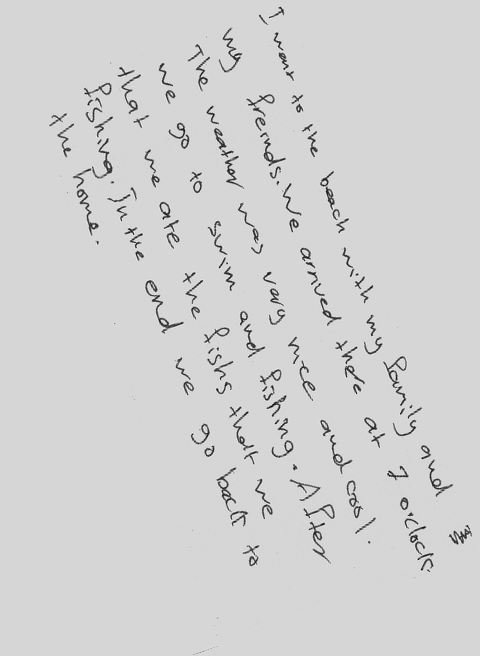 I want to the beach with my family and
my freinds. We arrived there at 7 o'clock.
The weather was very nice and cool.
we go to swim and fishing. After
that we ate the fishs thatt we
fishing. In the end we go back to
the home.